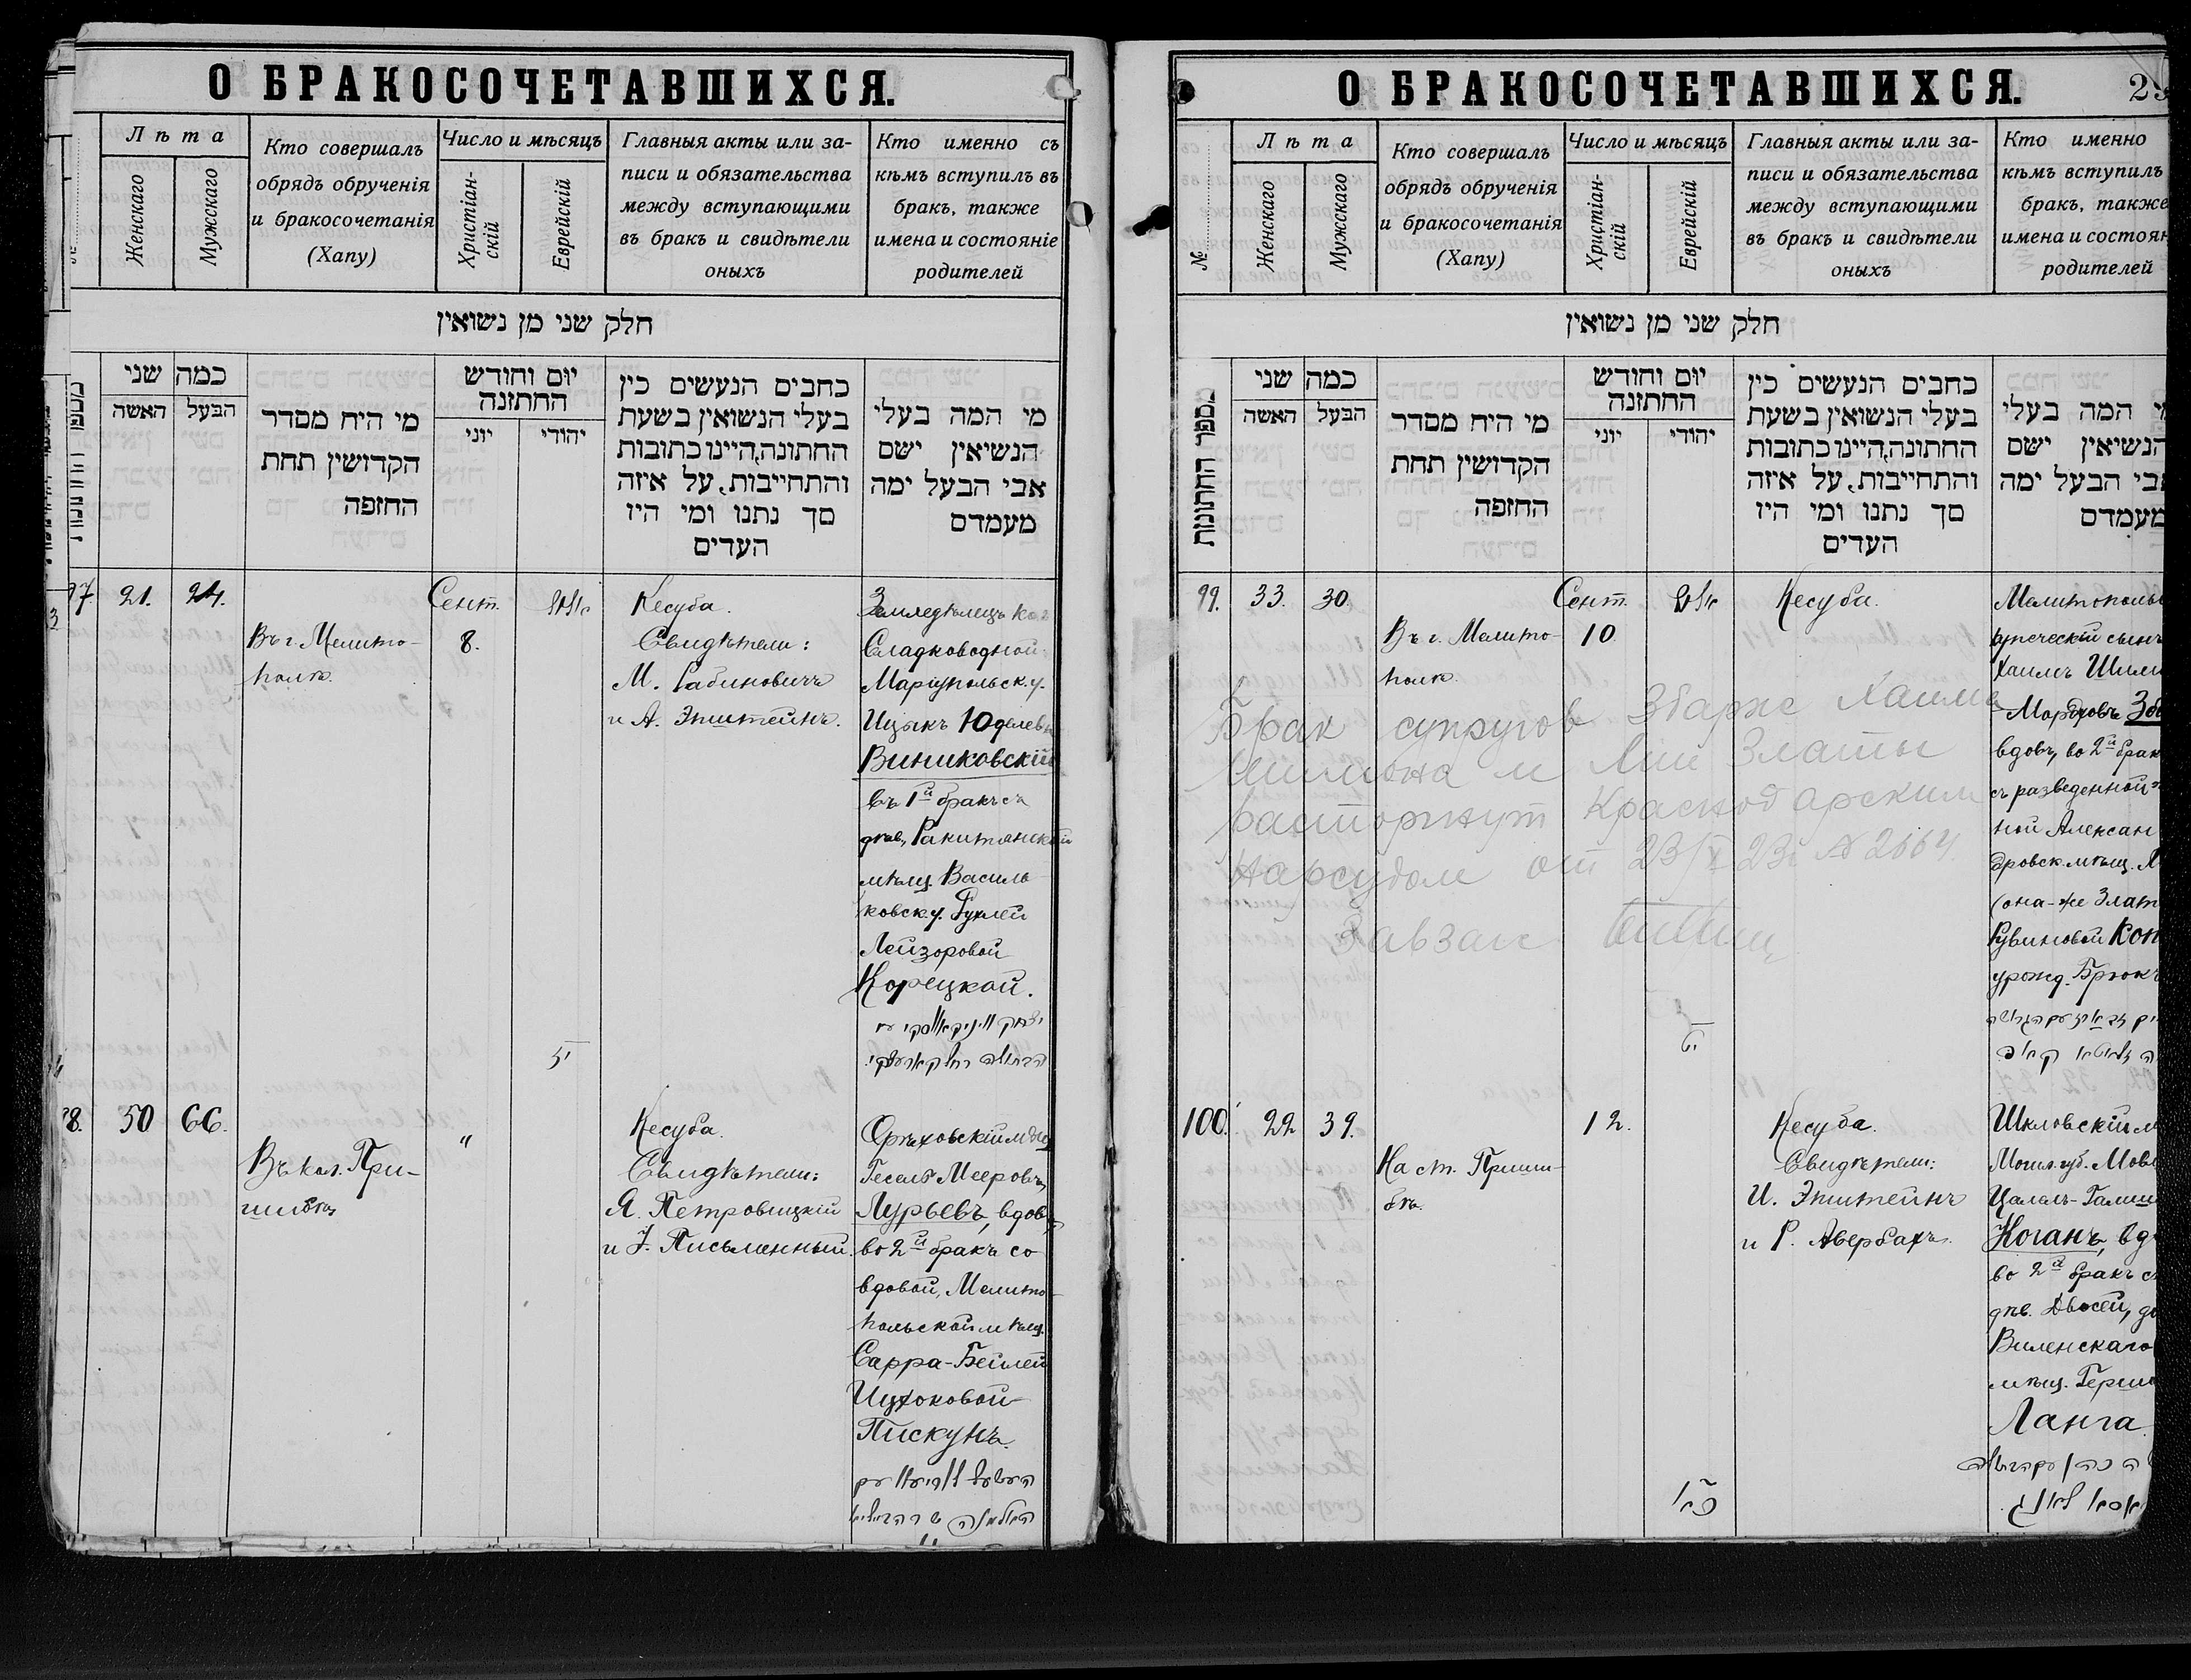 О БРАКОСОЧЕТАВШИХСЯ.
Лѣта
Женскаго
Мужскаго
Кто совершалъ
обрядъ обрученія
и бракосочетанія
(Хапу)
Число и мѣсяцъ
Христіан-
скій
Еврейскій
Главныя акты или за-
писи и обязательства
между вступающими
въ бракъ и свидѣтели
оныхъ
Кто именно съ
кѣмъ вступилъ въ
бракъ, также
имена и состояніе
родителей
חלק שני מן נשואין
כמה שני
האשה
הבעל
מי היח מסדר
הקדושין תחת
החזפה
יום וחודש
החתזנה
יוני
יהודי
כחבים הנעשים כין
בעלי הנשואין בשעת
החתונה,היינו כתובות
והתחייבות, על איזה
סך נתנו ומי היז
העדים
מי המה בעלי
הנשיאין ישם
אבי הבעל ימה
מעמדם
97.
21.
24.
Въ г. Мелито-
полѣ.
Сент.
8.
Кесуба.
Свидѣтели:
М. Рабиновичъ
и А. Эпштейнъ.
Земледѣлецъ кол
Сладководной
Маріупольск. у.
Ицыкъ Юделевъ
Виниковскій
въ 1й бракъ съ
дѣв. Ракитянской
мѣщ. Василь-
ковск. у. Рухлей
Лейзоровой
Корецкой.
98.
50
66.
Въ кол. При-
шибѣ
"
Кесуба.
Свидѣтели:
Я. Петровицкій
и І. Письменный.
Орѣховскій мѣщ
Гесель Мееровъ
Лурьевъ, вдов
во 2й бракъ со
вдовой, Мелито-
польской мѣщ.
Сарра-Бейлей
Ицхоковой
Пискунъ.
О БРАКОСОЧЕТАВШИХСЯ.
№
Лѣта
Женскаго
Мужскаго
Кто совершалъ
обрядъ обрученія
и бракосочетанія
(Хапу)
Число и мѣсяцъ
Христіан-
скій
Еврейскій
Главныя акты или за-
писи и обязательства
между вступающими
въ бракъ и свидѣтели
оныхъ
Кто именно
кѣмъ вступилъ
бракъ, также
имена и состоян
родителей
חלק שני מן נשואין
מספר החתונות
כמה שני
האשה
הבעל
מי היח מסדר
הקדושין תחת
החזפה
יום וחודש
החתזנה
יוני
יהודי
כחבים הנעשים כין
בעלי הנשואין בשעת
החתונה,היינו כתובות
והתחייבות, על איזה
סך נתנו ומי היז
העדים
מי המה בעלי
הנשיאין ישם
אבי הבעל ימה
מעמדם
99.
33.
30.
Въ г. Мелито-
полѣ.
Сент.
10.
Кесуба.
Мелитополь
купеческій сынъ
Хаимъ Шлим
Мордховъ Зба
вдовъ, во 2й брак
съ разведенной
ной Алексан
дровск. мѣщ. Л
(она-же Злат
Рувиновой Коп
урожд. Брюк
Брак супругов Збарже Хаима
Шлиома и Лии Златы
расторгнут Краснодарским
Нарсудом от 23/V 23г №2664.
Завзагс
100.
22
39.
На ст. Приши-
бѣ.
12.
Кесуба.
Свидѣтели:
И. Эпштейнъ
и Р. Авербахъ.
Шкловскій м
Могил. губ. Мов
Цалелъ-Галим
Коганъ, вд
во 2й бракъ съ
дѣв. Двосей, до
Виленскаго
мѣщ. Герш
Ланга